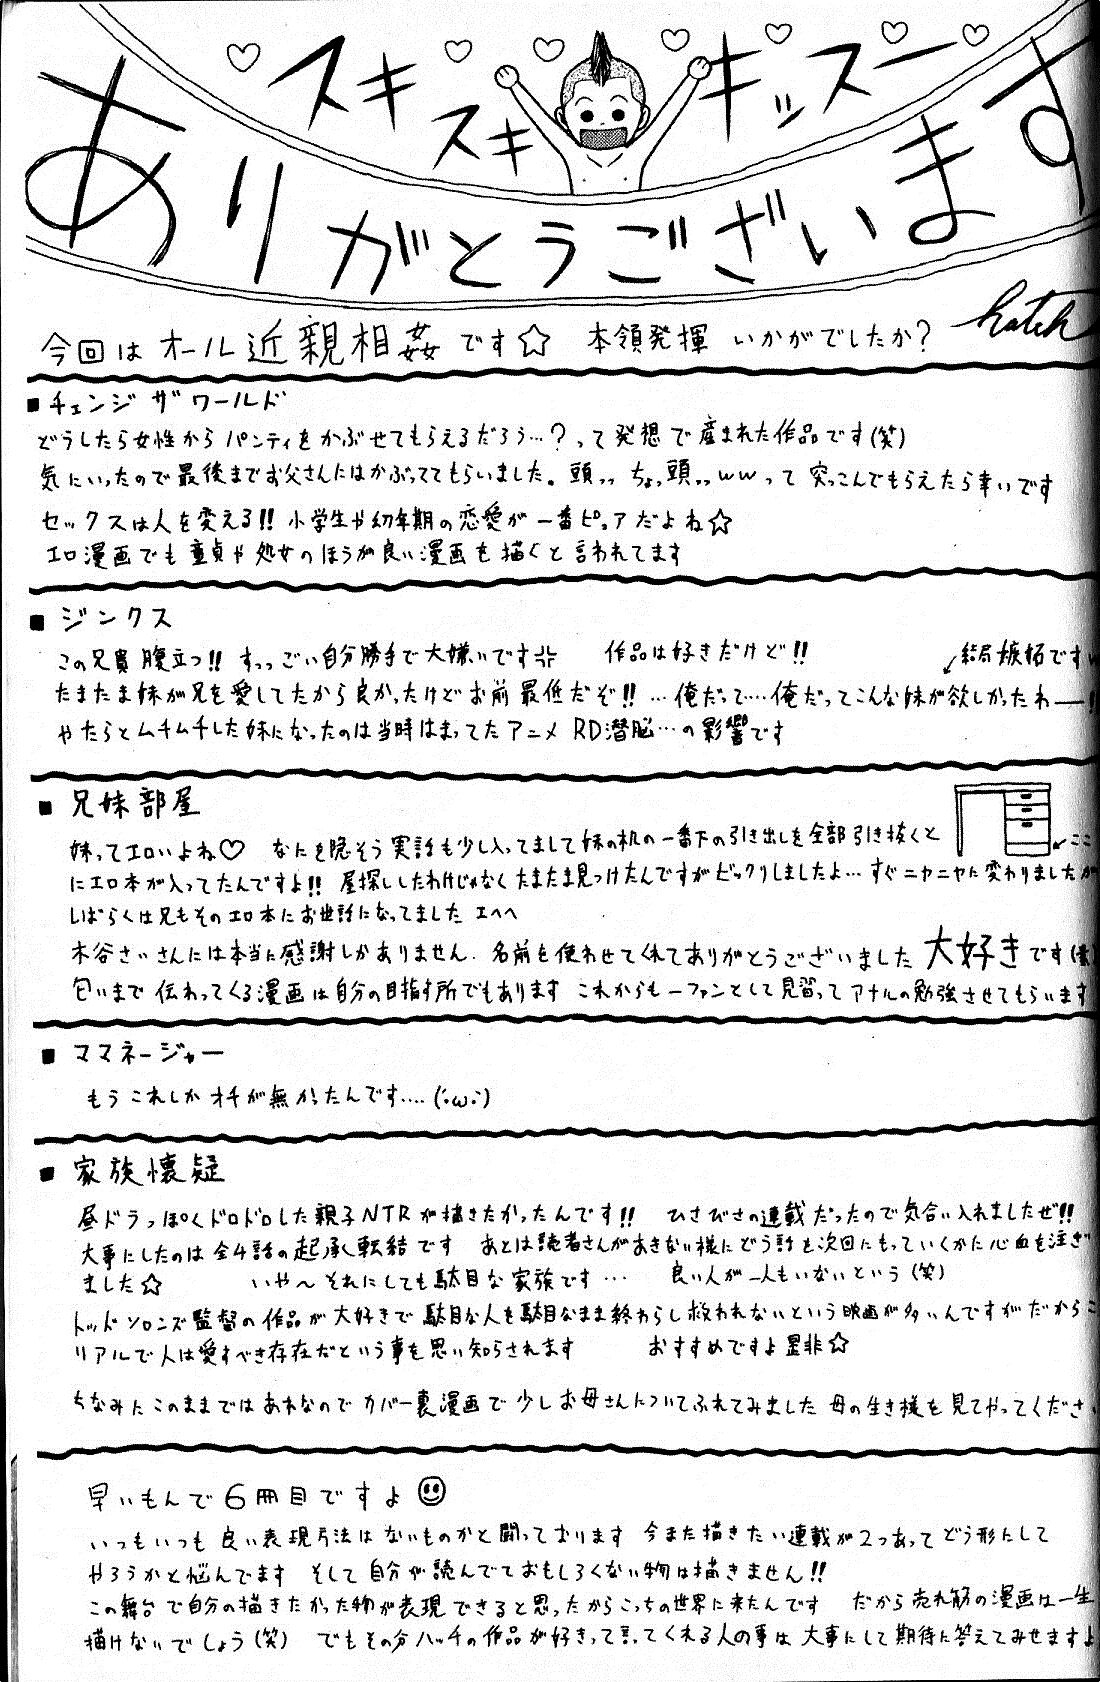 スキスキキッズー
ありがとうございます
今回はオール近親相姦です☆ 本領発揮 いかがでしたか?
hatch
■チェンジ ザ ワールド
どうしたら女性からパンティをかぶせてもらえるだろう…?って発想で産まれた作品です(笑)
気にいったので最後までお父さんにはかぶっててもらいました。頭っっ ちょっ頭っっwwって突っこんでもらえたら幸いです
セックスは人を変える!! 小学生や幼年期の恋愛が一番ピュアだよね☆
エロ漫画でも童貞や処女のほうが良い漫画を描くと言われてます
■ジンクス
この兄貴腹立つ!! すっっごい自分勝手で大嫌いです 作品は好きだけど!! 結局嫉妬ですw
たまたま妹が兄を愛してたから良かったけどお前最低だぞ!! …俺だって…俺だってこんな妹が欲しかったわ――!!
やたらとムチムチした妹になったのは当時はまってたアニメ RD潜脳…の影響です
■兄妹部屋
妹ってエロいよね♡ なにを隠そう実話も少し入ってまして妹の机の一番下の引き出しを全部引き抜くと ←ここ
にエロ本が入ってたんですよ!! 屋探ししたわけじゃなくたまたま見つけたんですがビックリしましたよ…すぐニヤニヤに変わりましたが
しばらくは兄もそのエロ本にお世話になってました エヘヘ
木谷さいさんには本当に感謝しかありません. 名前を使わせてくれてありがとうございました 大好きです
匂いまで伝わってくる漫画は自分の目指す所でもあります これからも一ファンとして見習ってアナルの勉強させてもらいます
■ママネージャー
もうこれしかオチが無かったんです….(´･ω･`)
■家族懐疑
昼ドラっぽくドロドロした親子NTRが描きたかったんです!! ひさびさの連載だったので気合い入れましたぜ!!
大事にしたのは全4話の起承転結です あとは読者さんがあきない様にどう話を次回にもっていくかに心血を注ぎ
ました☆ いや〜それにしても駄目な家族です… 良い人が一人もいないという(笑)
トッドソロンズ監督の作品が大好きで駄目な人を駄目なまま終わらし救われないという映画が多いんですがだからこ
リアルで人は愛すべき存在だという事を思い知らされます おすすめですよ是非☆
ちなみにこのままではあれなのでカバー裏漫画で少しお母さんについてふれてみました 母の生き様を見てやってくださ
早いもんで6冊目ですよ☺
いつもいつも良い表現方法はないものかと闘っております 今また描きたい連載が2つあってどう形にして
やろうかと悩んでます そして自分が読んでておもしろくない物は描きません!!
この舞台で自分の描きたかった物が表現できると思ったからこっちの世界に来たんです だから売れ筋の漫画は一生
描けないでしょう(笑) でもその分ハッチの作品が好きって言ってくれる人の事は大事にして期待に答えてみせますよ